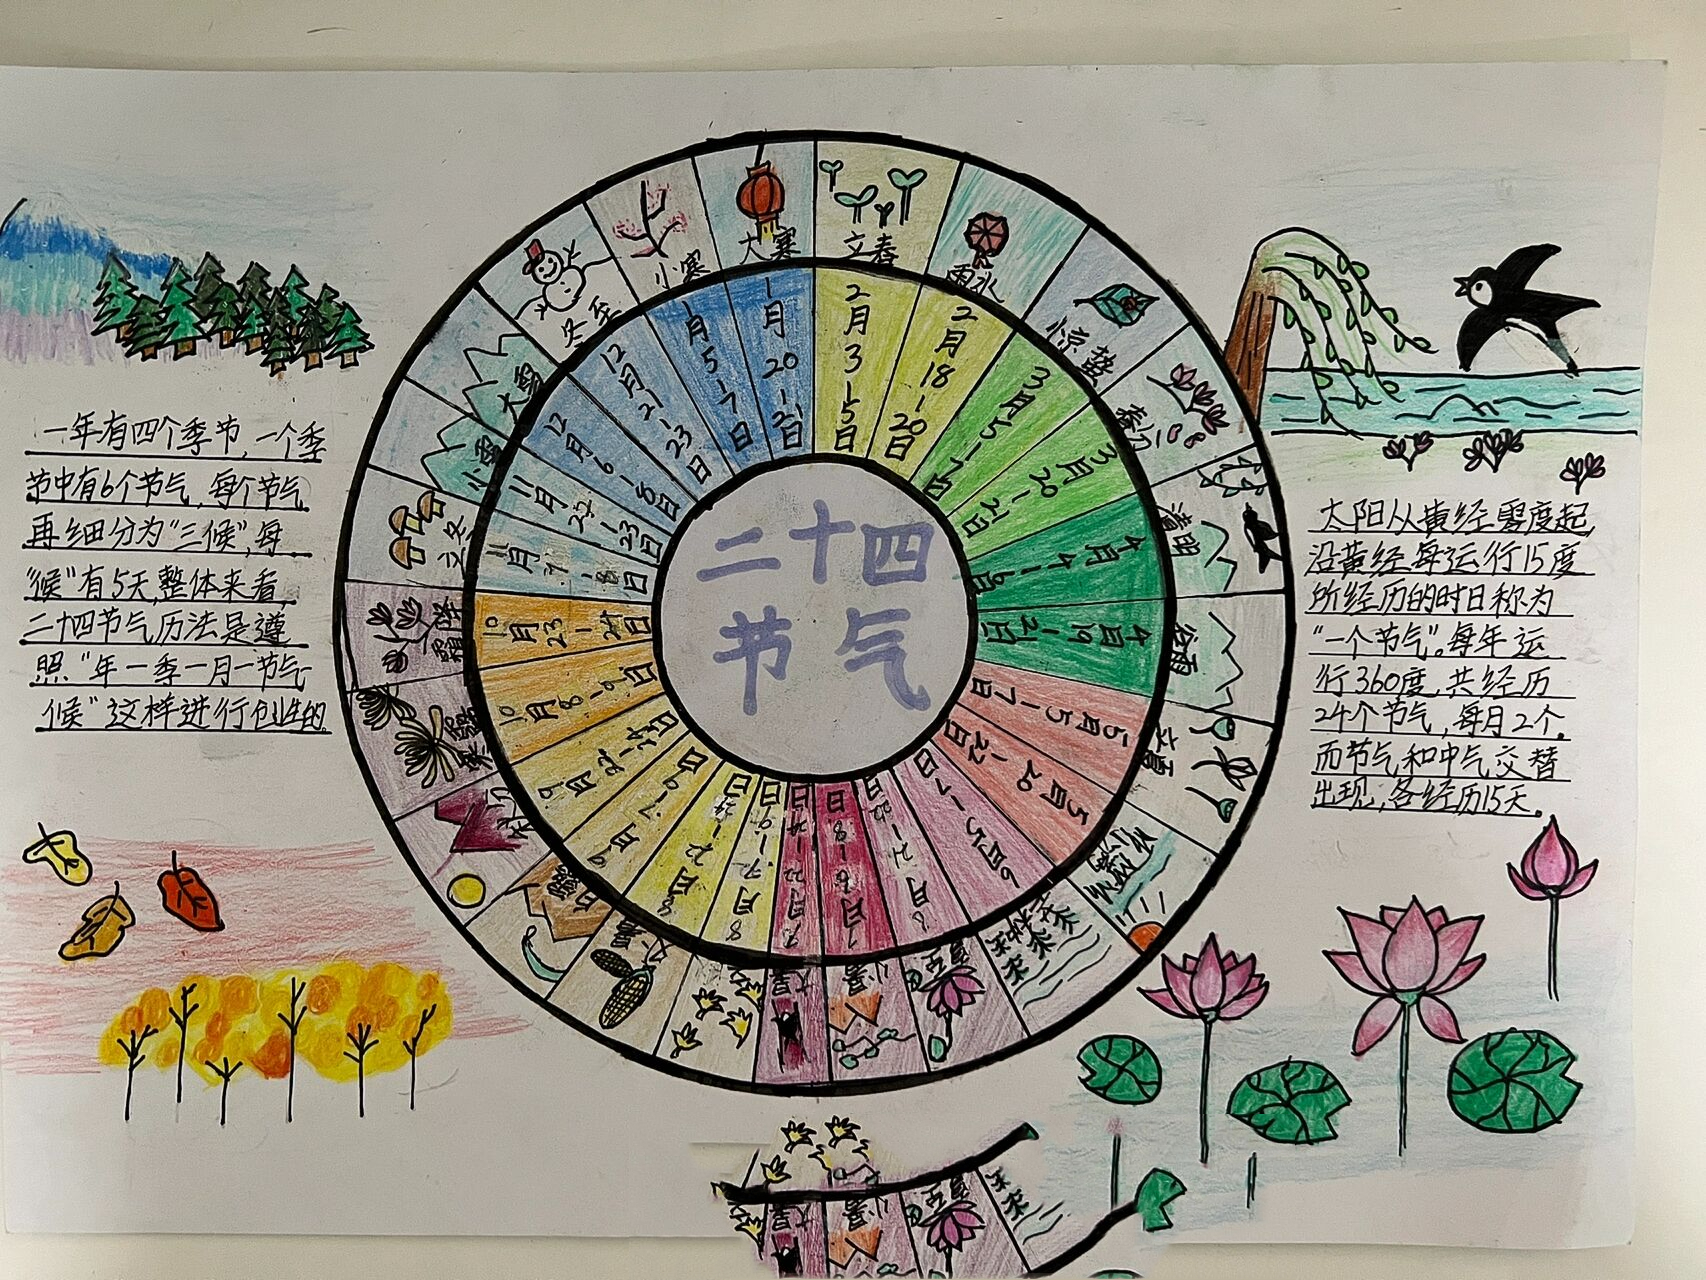 二十四
节气
大寒
立春
雨水
惊蛰
春分
清明
谷雨
立夏
小满
芒种
夏至
小暑
大暑
立秋
处暑
白露
秋分
寒露
霜降
立冬
小雪
大雪
冬至
小寒
1月20-21日
2月3-5日
2月18-20日
3月5-7日
3月20-21日
4月4-6日
4月19-21日
5月5-7日
5月20-22日
6月5-7日
6月21-22日
7月6-8日
7月22-24日
8月7-9日
8月22-24日
9月7-9日
9月22-24日
10月8-9日
10月23-24日
11月7-8日
11月22-23日
12月6-8日
12月21-23日
1月5-7日
一年有四个季节,一个季
节中有6个节气,每个节气
再细分为“三候”,每
“候”有5天,整体来看,
二十四节气历法是遵
照“年一季一月一节气
候”这样进行创造的
太阳从黄经零度起,
沿黄经每运行15度
所经历的时日称为
“一个节气”。每年运
行360度,共经历
24个节气,每月2个。
而节气和中气交替
出现,各经历15天。